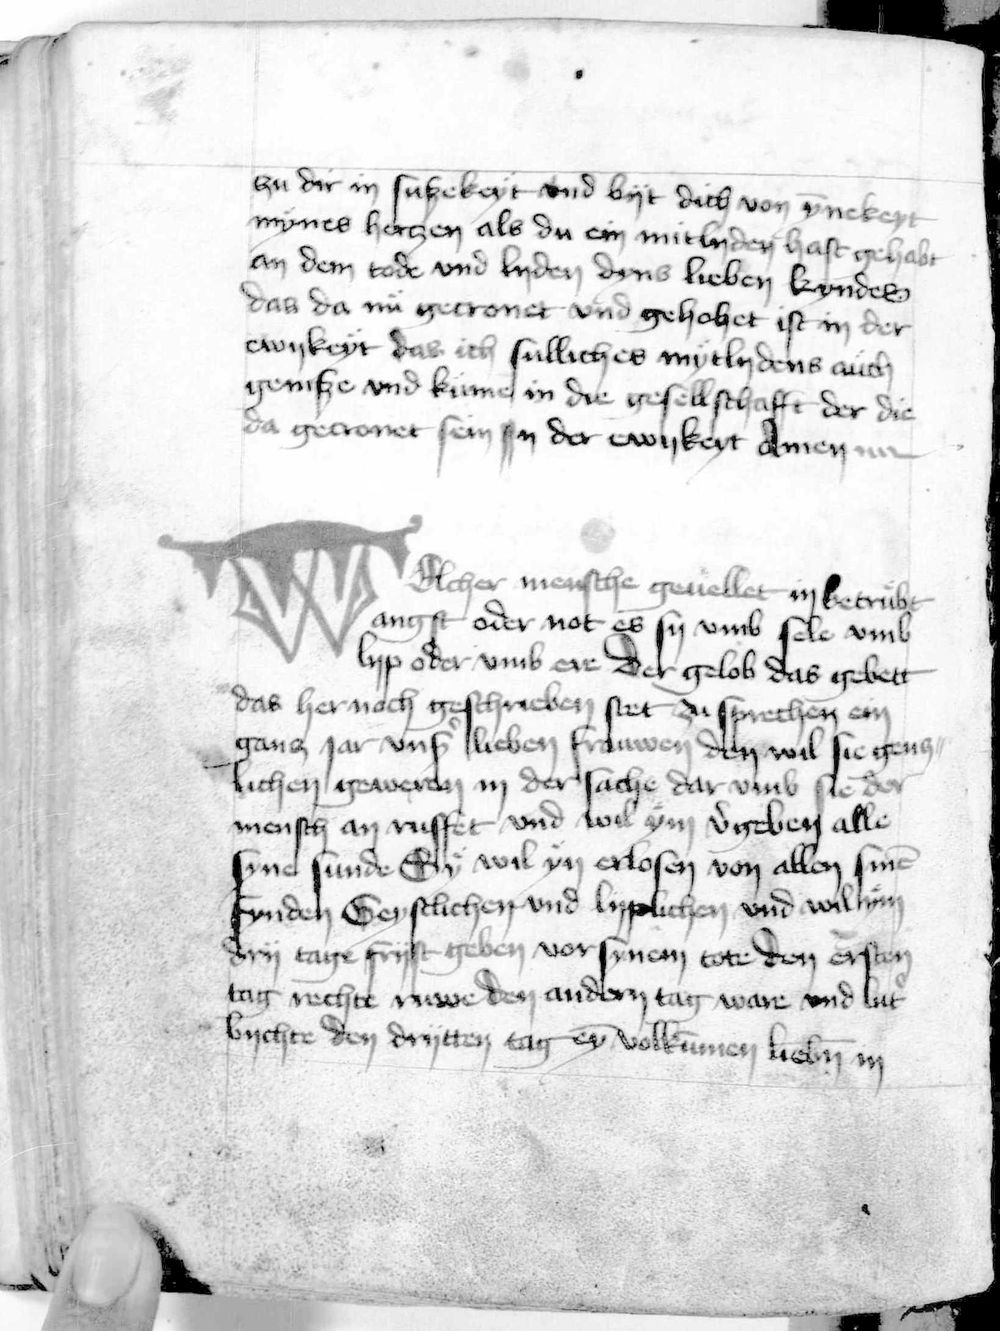 zu dir in sußekeyt vnd byt dich von ynekeyt
mynes hertzen als du ein mitlyden hast gehabt
an dem tode vnd lyden dyns lieben kyndes
das da nu gecronet vnd gehohet ist in der
ewykeyt das ich sulliches mytlydens auch
genisse vnd kume in die gesellschafft der die
da gecronet sein Jn der ewykeyt Amen
WElcher mensche geuellet in betrubt
angst oder not es sy vmb sele vmb
lyp oder vmb ere Der gelob das gebett
das hernoch geschrieben stet zu sprechen ein
gantz jar vnß lieben frauwen den wil sie gentz
lichen geweren in der sache dar vmb sie der
mensch an ruffet vnd wil ym v̓geben alle
syne sunde Sy wil yn erlosen von allen sinē
fynden Geystlichen vnd lyplichen vnd wil ym
dry tage fryst geben vor synem tote den ersten
tag rechte ruwe den andern tag ware vnd lut̓
bychte den drytten tag ey volkumen lieby in